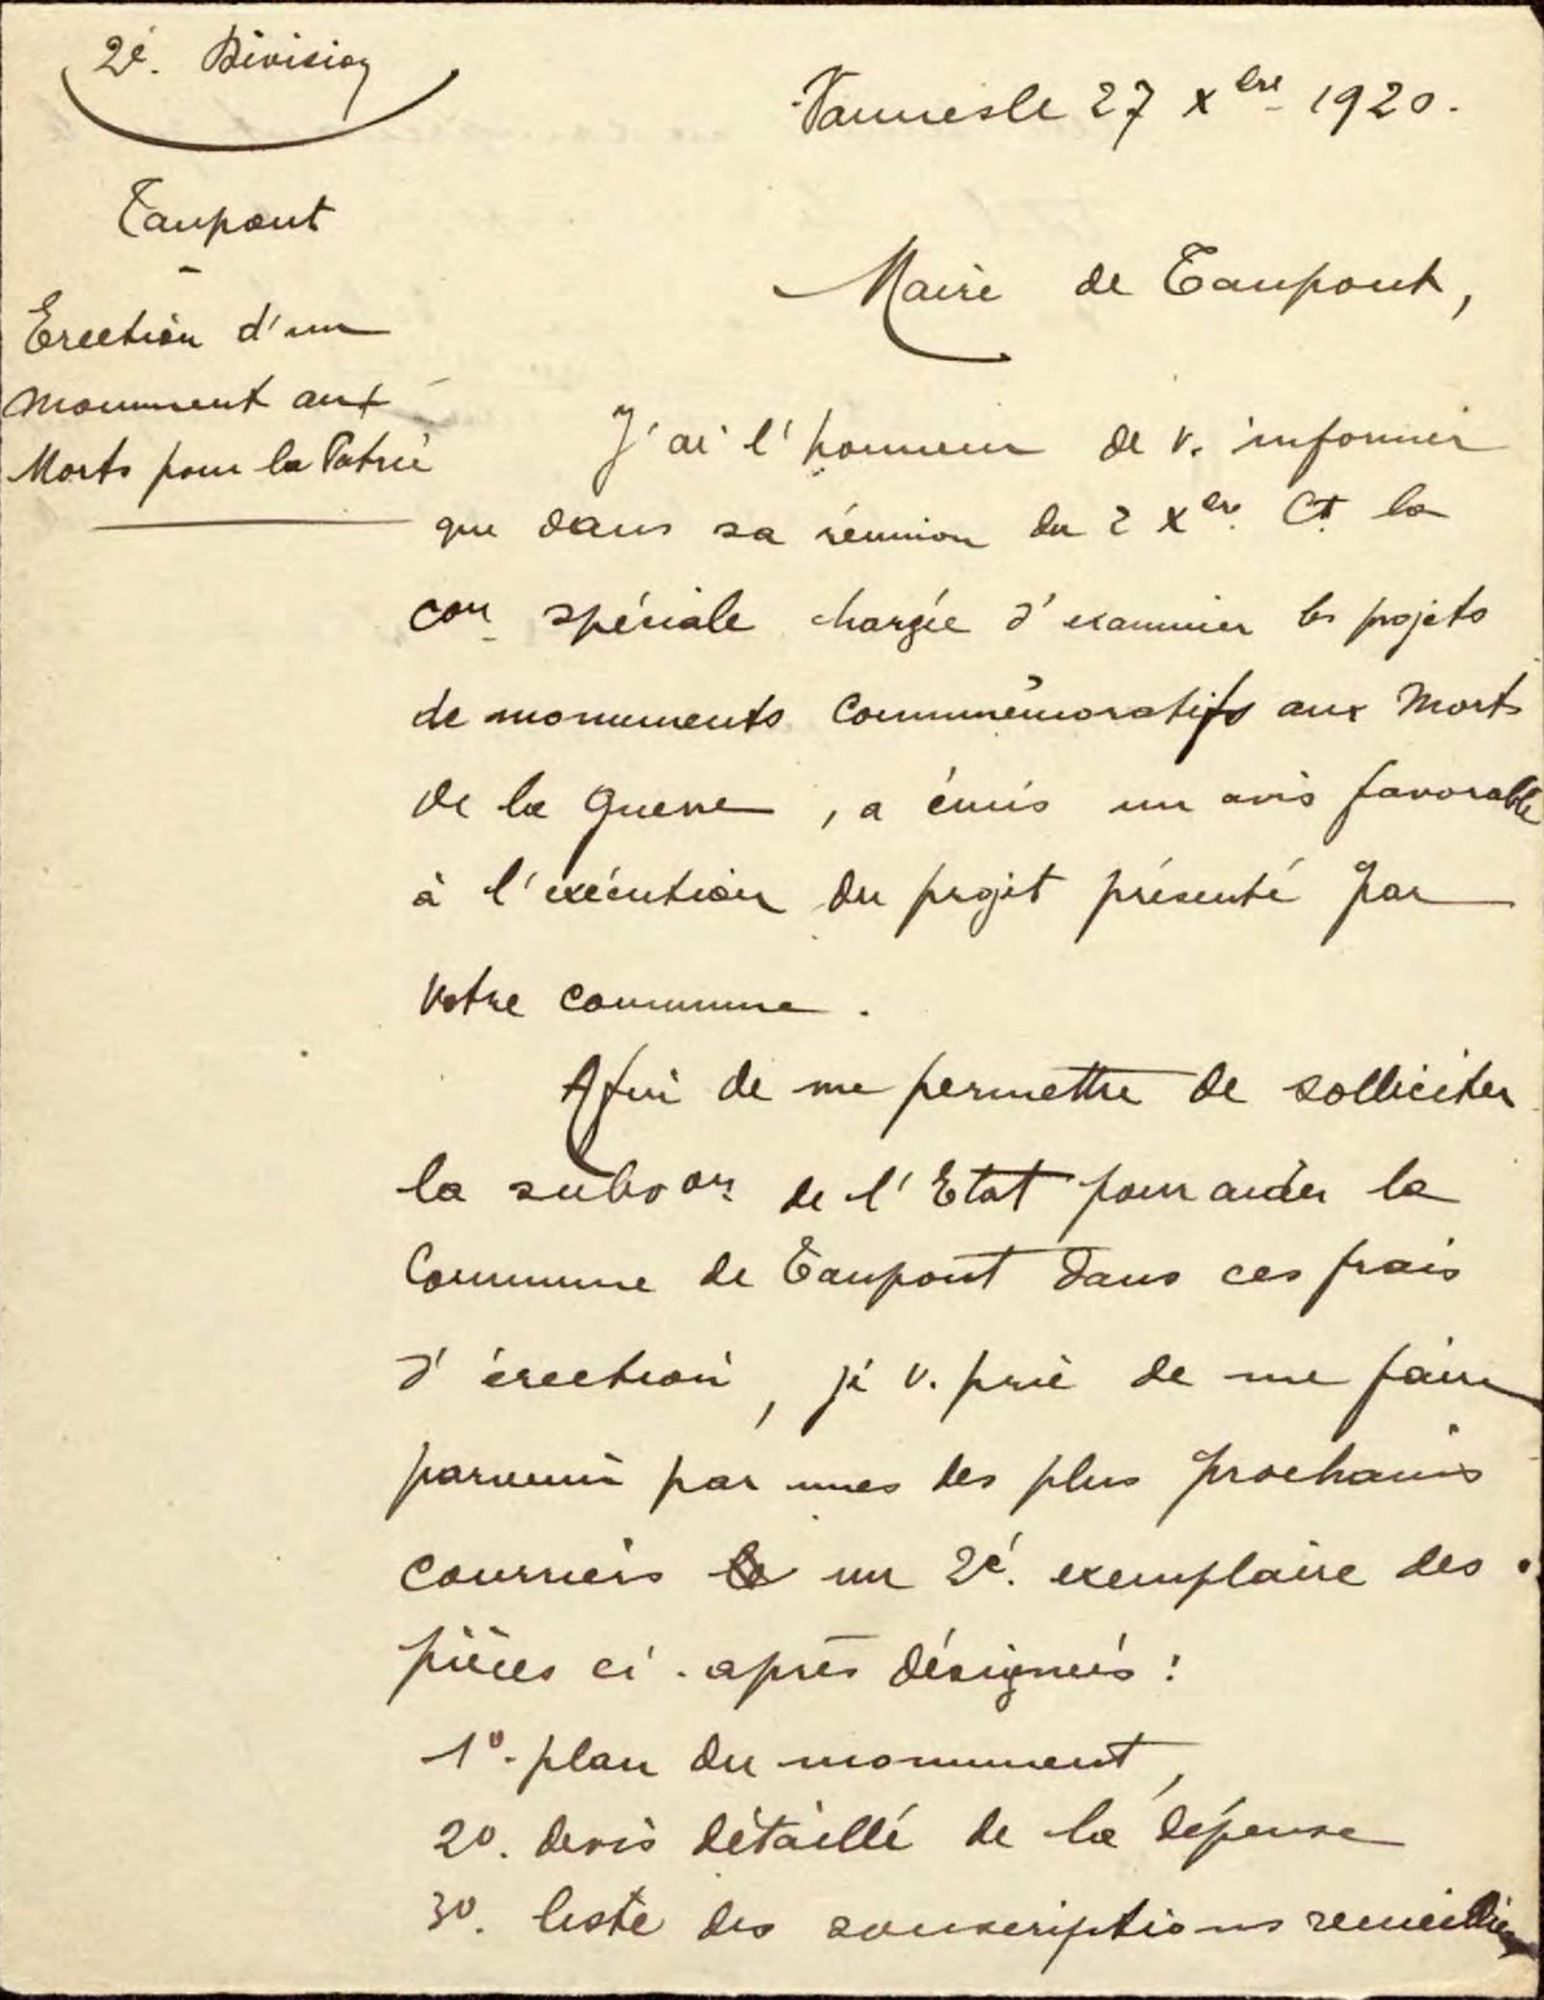 2è. Division
Vannes le 27 Xbre 1920.
Taupont
-
Erection d'un
monument aux
Morts pour la Patrie
Maire de Taupont,
J'ai l'honneur de v. informer
que dans sa réunion du 2 Xbre Ct la
con spéciale chargée d'examiner les projets
de monuments commémoratifs aux Morts
de la Guerre, a émis un avis favorable
à l'exécution du projet présenté par
votre commune.
Afin de me permettre de solliciter
la subvon de l'Etat pour aider la
Commune de Taupont dans ces frais
d'érection, je v. prie de me faire
parvenir par unes des plus prochains
courriers un 2è. exemplaire des
pièces ci-après désignées :
1º. plan du monument,
2º. devis détaillé de la dépense
3º. liste des souscriptions recueillies